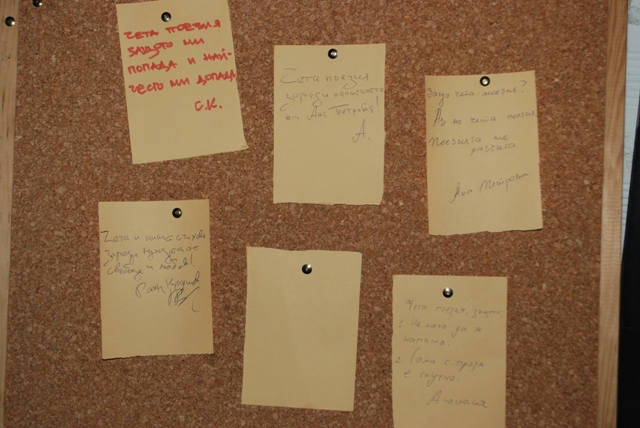 чета поезия
защото ми
попада и най-
често ми допада
С.К.
Чета поезия
заради написаното
от Ана Петрова!
А.
Защо чета поезия?
Аз не чета поезия
Поезията ме
разчита
Ана Петрова
Чета и пиша стихове
заради нуждата от
свобода и любов!
Чета поезия, защото:
1. Не мога да я
напиша.
2. Само с проза
е скучно.
Анастасия